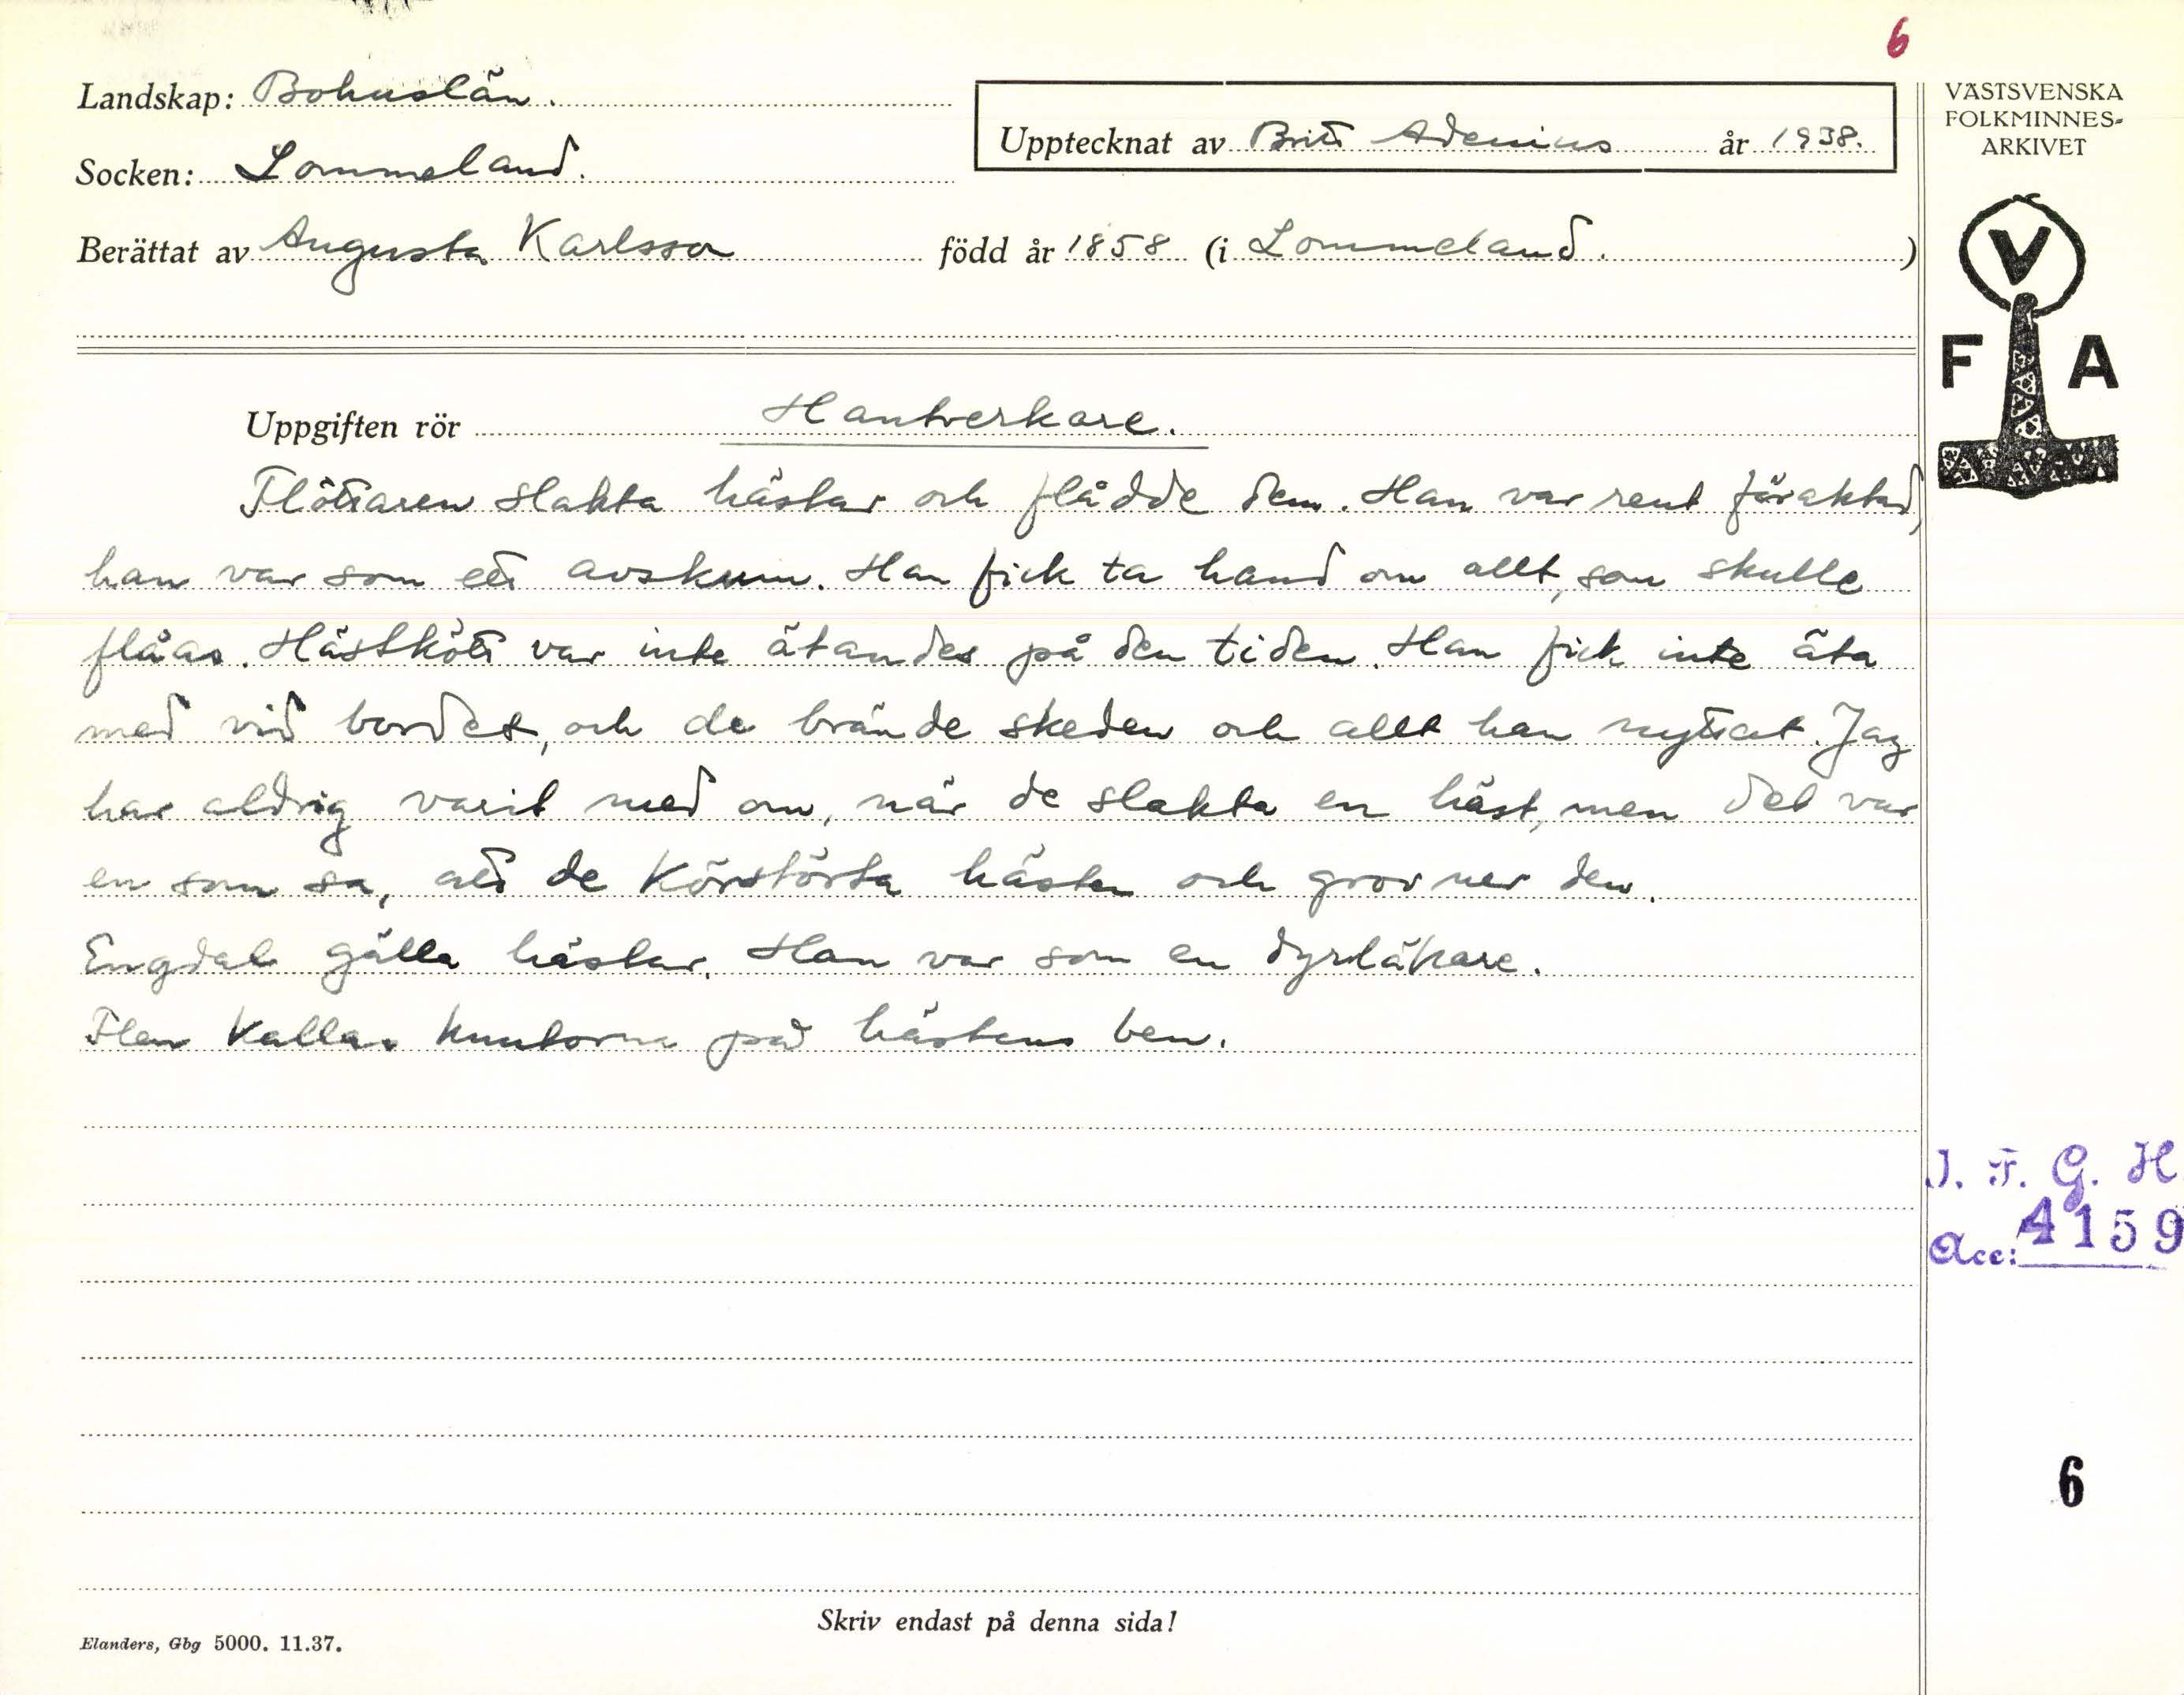 6
Landskap: Bohuslän.
Upptecknat av Britt Adenius år 1938.
Socken: Lommeland.
Berättat av Augusta Karlsson född år 1858 (i Lommeland.)
VÄSTSVENSKA
FOLKMINNES-
ARKIVET
V
F A
Uppgiften rör Hantverkare.
Flöttaren slakta hästar och flådde dem. Han var rent föraktad,
han var som ett avskum. Han fick ta hand om allt, som skulle
flåas. Hästkött var inte ätandes på den tiden. Han fick inte äta
med vid bordet, och de brände skeden och allt han nyttat. Jag
har aldrig varit med om, när de slakta en häst, men det var
en som sa, att de körstörta hästen och grov ner den.
Engdal gälla hästar. Han var som en dyrläkare.
Flen kallas knutorna på hästens ben.
I. F. G. H
Acc: 4159
6
Skriv endast på denna sida!
Elanders, Gbg 5000. 11.37.